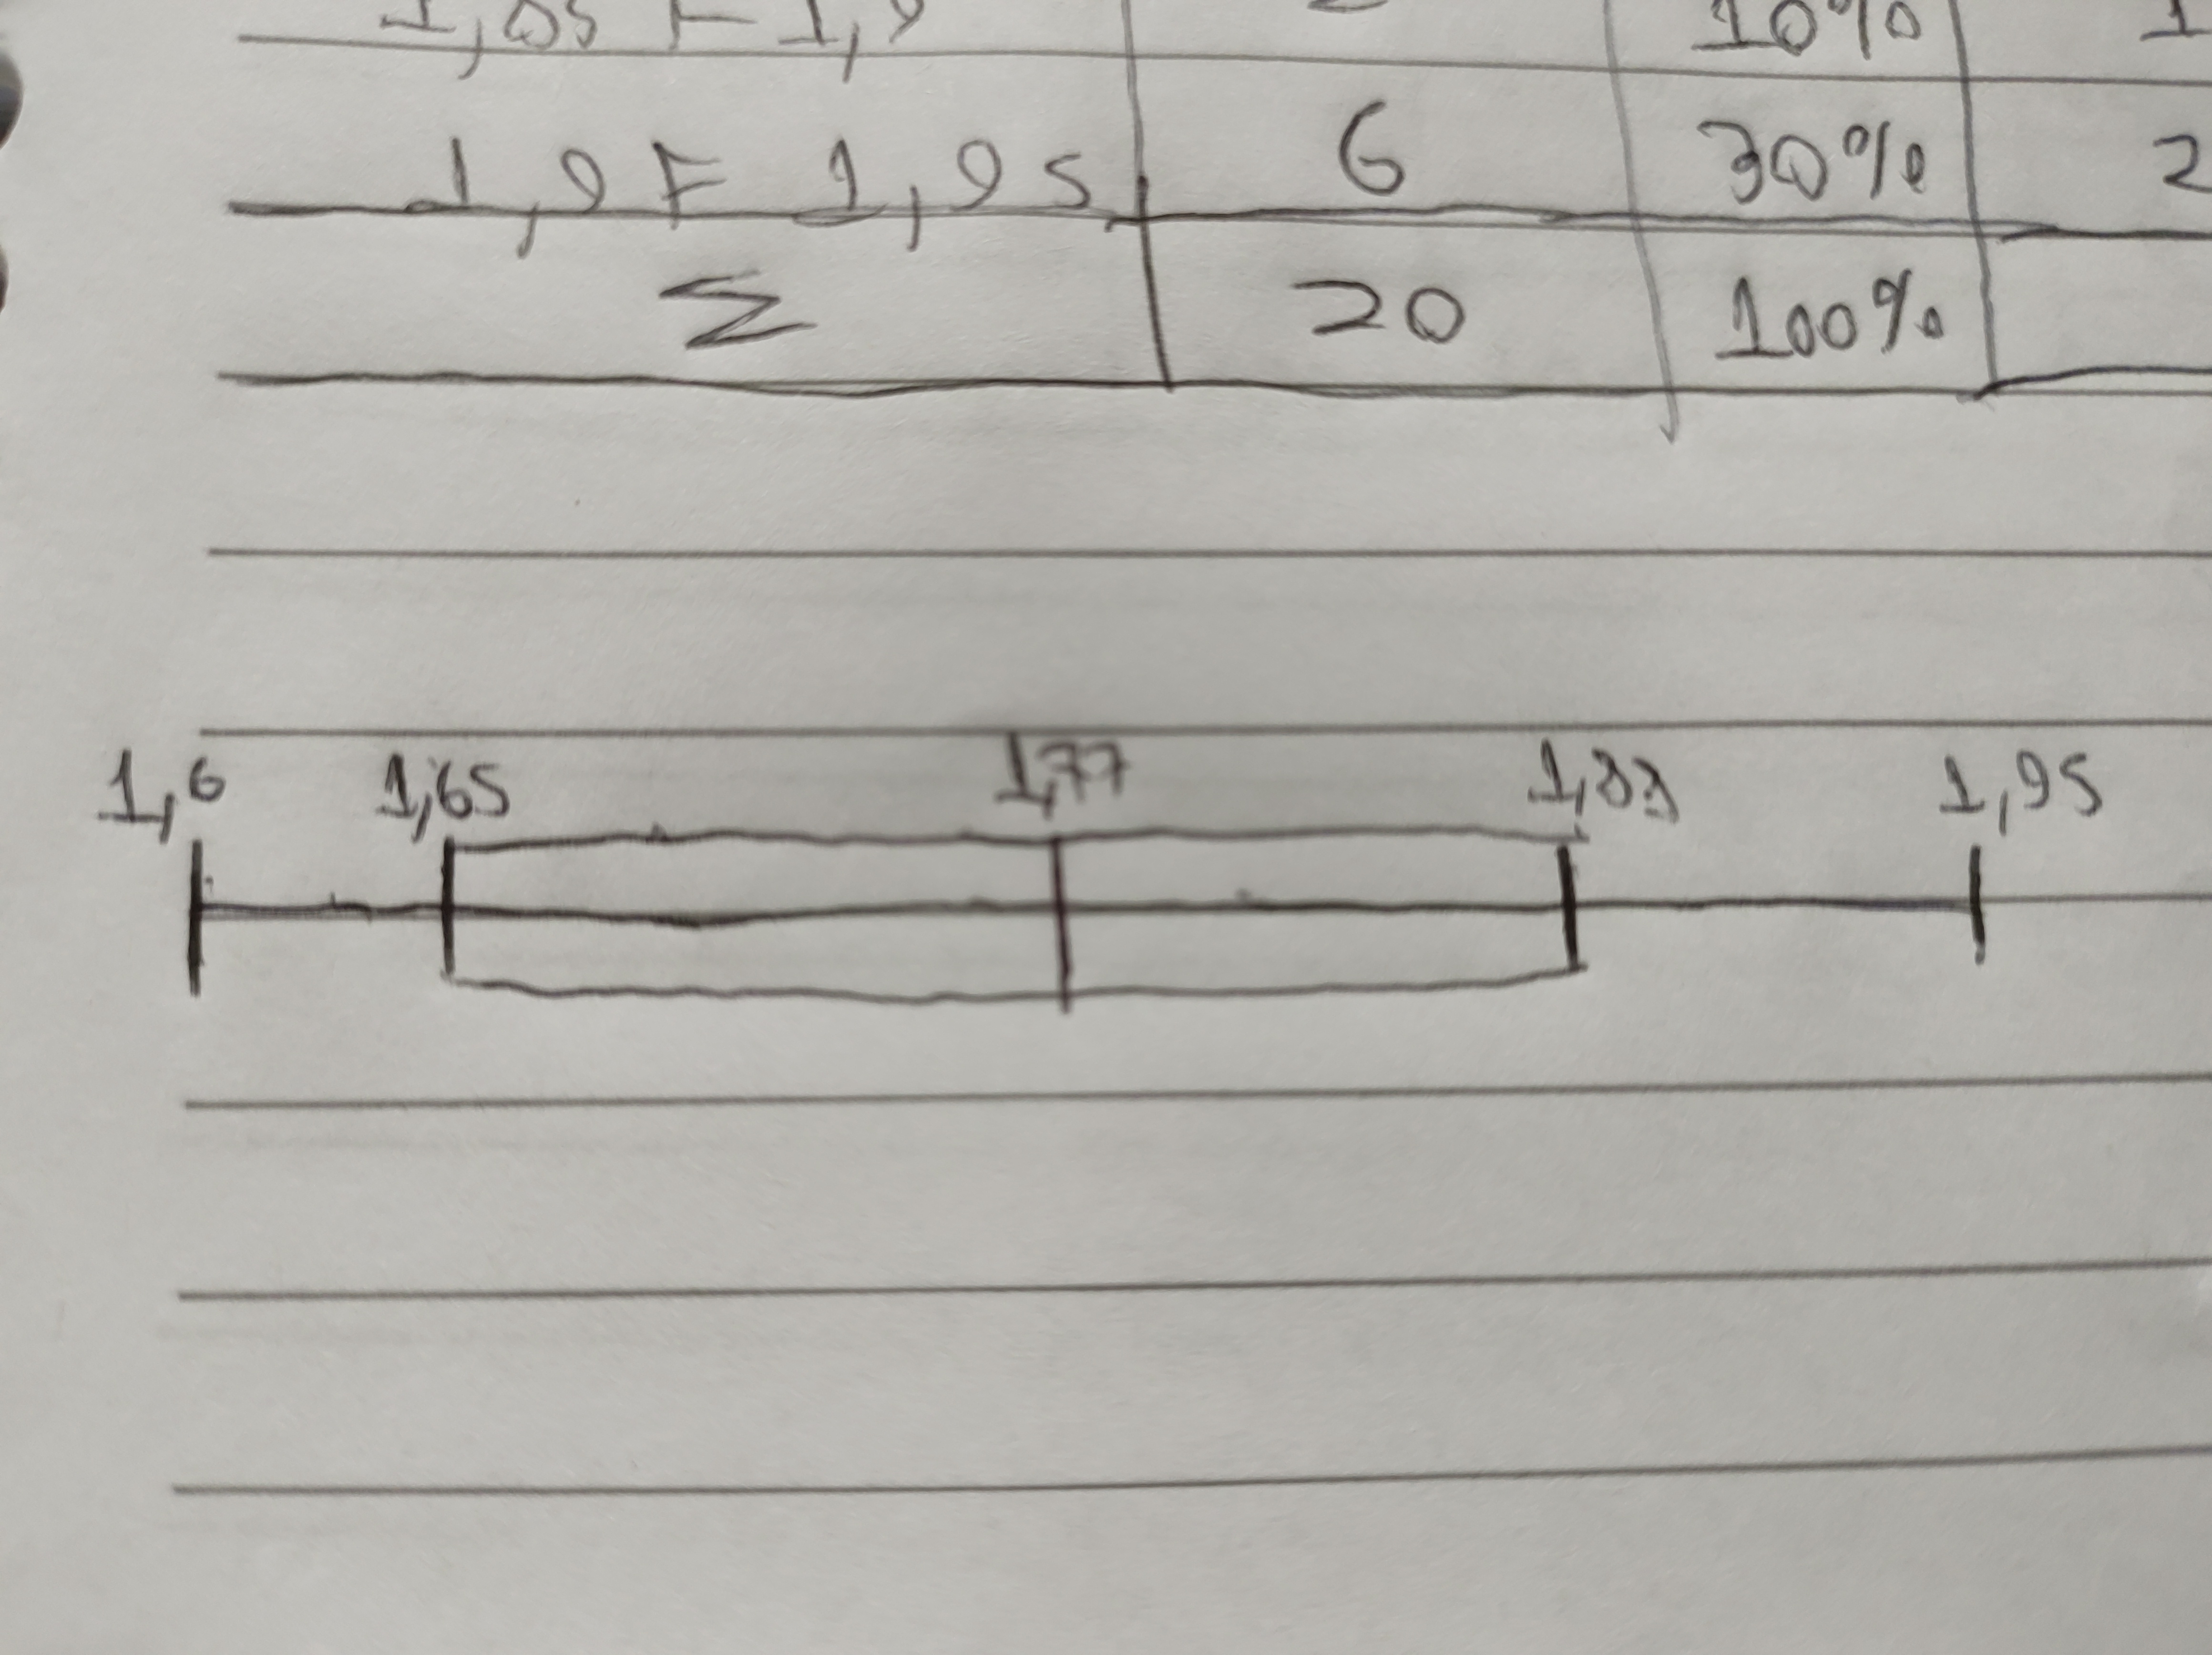 10% 1
1,9 ⊢ 1,95 6 30% 2
Σ 20 100%
1,6 1,65 1,77 1,83 1,95